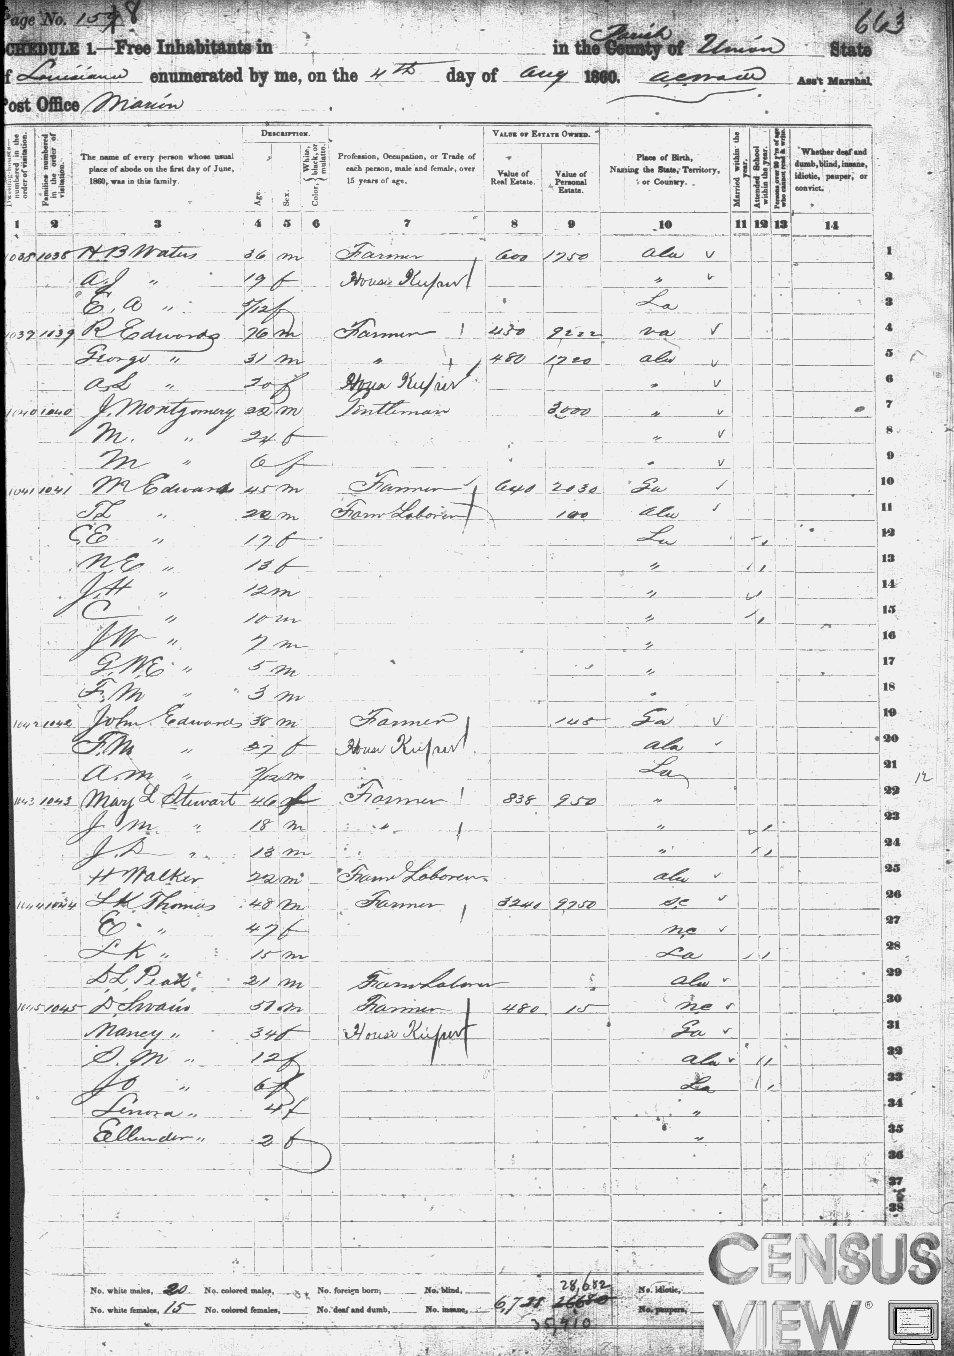 Page No. 158
663
SCHEDULE 1.—Free Inhabitants in in the County Parish of Union State
of Louisiana enumerated by me, on the 4th day of Aug 1860. Ass't Marshal.
Post Office Marion
DESCRIPTION. VALUE OF ESTATE OWNED.
Dwelling-houses—numbered in the order of visitation. Families numbered in the order of visitation. The name of every person whose usual place of abode on the first day of June, 1860, was in this family. Age. Sex. Color, White, black, or mulatto. Profession, Occupation, or Trade of each person, male and female, over 15 years of age. Value of Real Estate. Value of Personal Estate. Place of Birth, Naming the State, Territory, or Country. Married within the year. Attended School within the year. Persons over 20 y'rs of age who cannot read & write. Whether deaf and dumb, blind, insane, idiotic, pauper, or convict.
1 2 3 4 5 6 7 8 9 10 11 12 13 14
1038 1038 H B Waters 36 m Farmer 600 1750 ala 1
A J " 19 f House Keeper " 2
E. A " /12 f La 3
1039 1039 R Edwards 76 m Farmer 430 9222 va 4
George " 31 m " 480 1720 ala 5
A L " 20 f House Keeper " 6
1040 1040 J. Montgomery 22 m Gentleman 3000 " 7
M. " 24 f " 8
M " 6 f " 9
1041 1041 M Edwards 45 m Farmer 640 2030 Ga 10
T L " 22 m Farm Laborer 100 ala 11
C E " 17 f La 12
N. E " 13 f " 13
J. H " 12 m " 14
C " 10 m " 15
J W " 7 m " 16
G. W. E " 5 m " 17
F. M " 3 m " 18
1042 1042 John Edwards 38 m Farmer 145 Ga 19
F. M " 27 f House Keeper ala 20
A. M " /12 m La 21
12
1043 1043 Mary L Stewart 46 f Farmer 838 950 " 22
J M " 18 m " " 23
J D " 13 m " 24
H Walker 22 m Farm Laborer ala 25
1044 1044 L K Thomas 48 m Farmer 3240 9750 SC 26
E " 47 f NC 27
L K " 15 m La 28
D L Peak 21 m Farm Laborer ala 29
1045 1045 D Swain 57 m Farmer 480 15 NC 30
Nancy " 34 f House Keeper Ga 31
S. M " 12 f Ala 32
J O " 6 f La 33
Linora " 4 f " 34
Ellender " 2 f " 35
36
37
38
No. white males, 20 No. colored males, No. foreign born, No. blind, 28,682 No. idiotic,
No. white females, 15 No. colored females, No. deaf and dumb, No. insane, 6,728 26680 No. paupers,
35,410
CENSUS
VIEW®